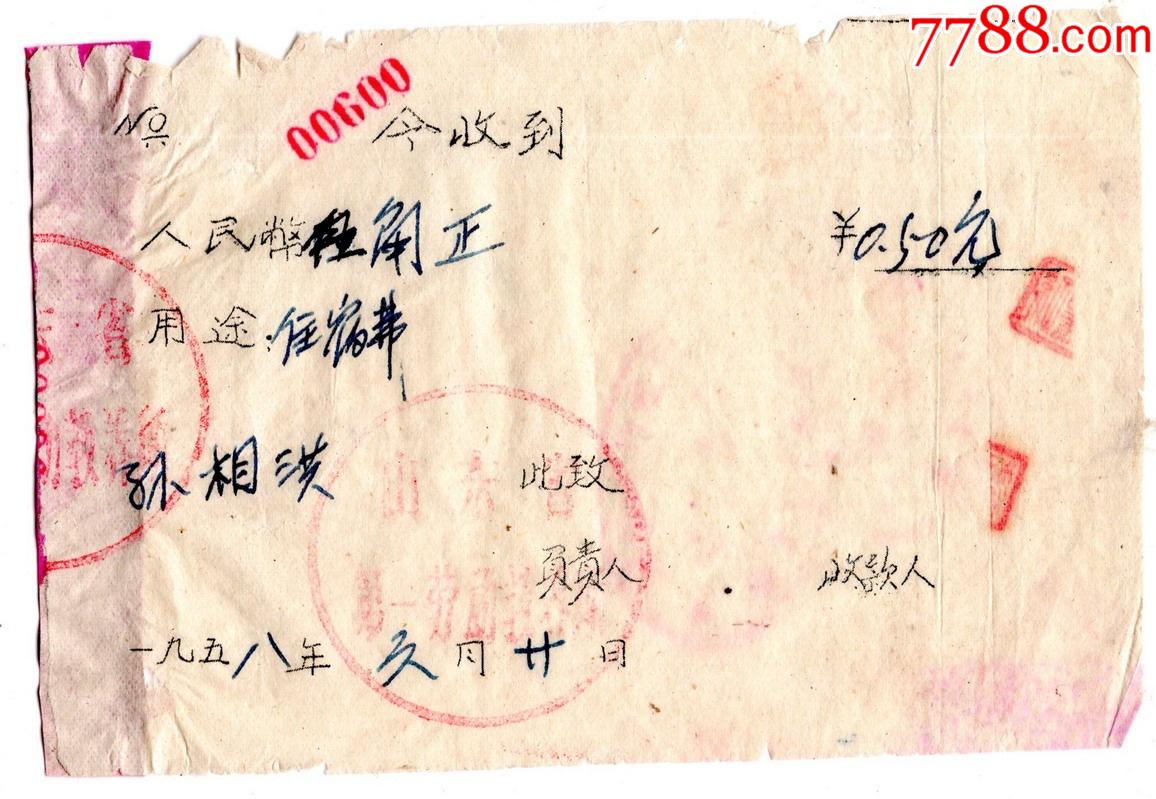 7788.com
№ 00600 今收到
人民幣伍角正 ¥0.50元
用途:住宿弗
孙相洪 此致
負責人 收款人
一九五八年 久月廿日
山东省
第一劳
省